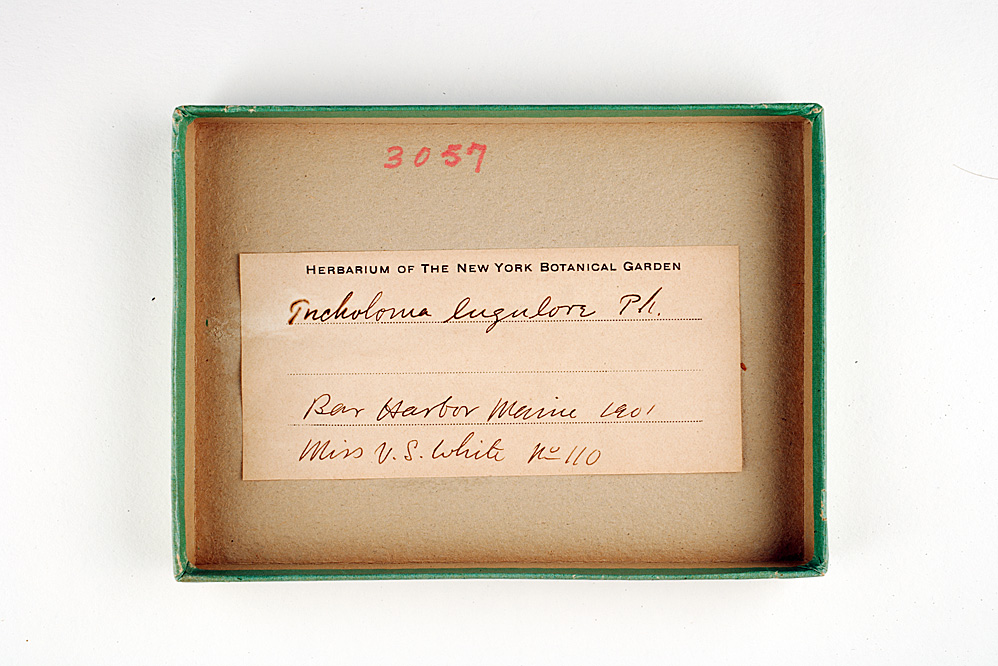 3057
HERBARIUM OF THE NEW YORK BOTANICAL GARDEN
Tricholoma Pk.
Bar Harbor Maine 1901
Miss V. S. White No 110